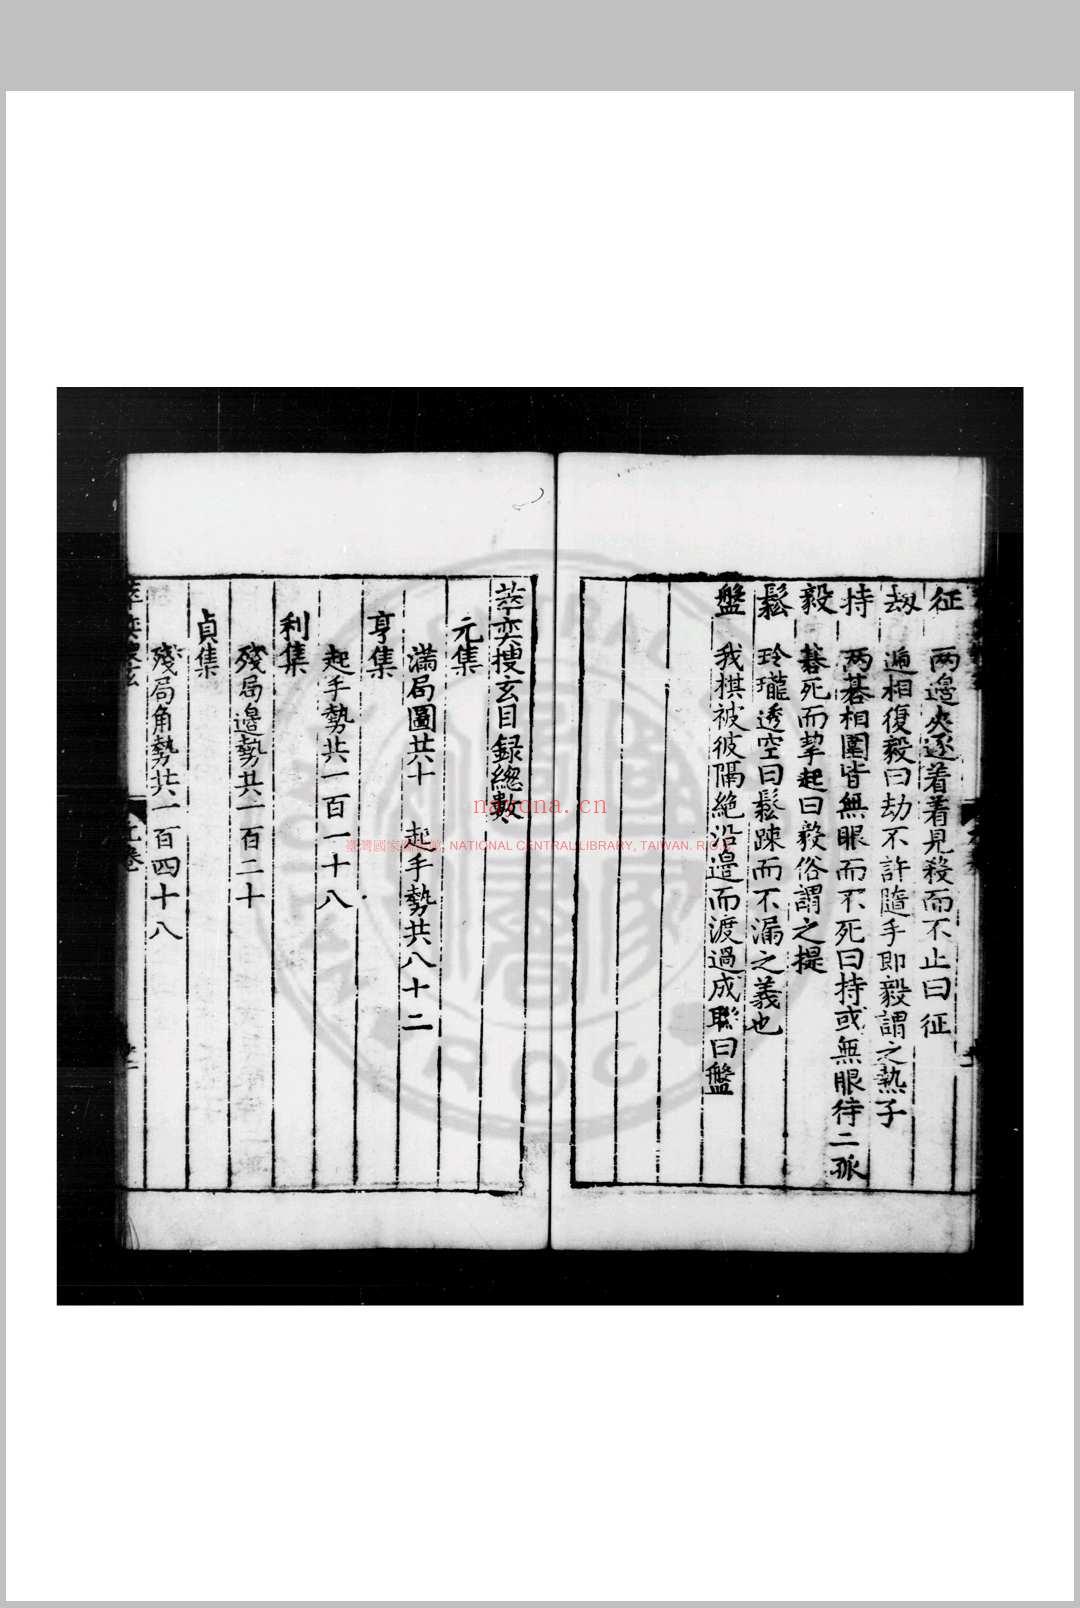 征 两邉夾逐着着見殺而不止曰征
刼 遍相復毅曰劫不許隨手即毅謂之熱子
持 两碁相圍皆無眼而不死曰持或無眼待二孤
毅 碁死而挈起曰毅俗謂之提
鬆 玲瓏透空曰鬆踈而不漏之義也
盤 我棋被彼隔絶沿邉而渡過成聮曰盤
萃奕搜玄目録總數
元集
滿局圖共十 起手勢共八十二
亨集
起手勢共一百一十八
利集
殘局邉勢共一百二十
貞集
殘局角勢共一百四十八
nayona.cn
NATIONAL CENTRAL LIBRARY, TAIWAN. R.O.C